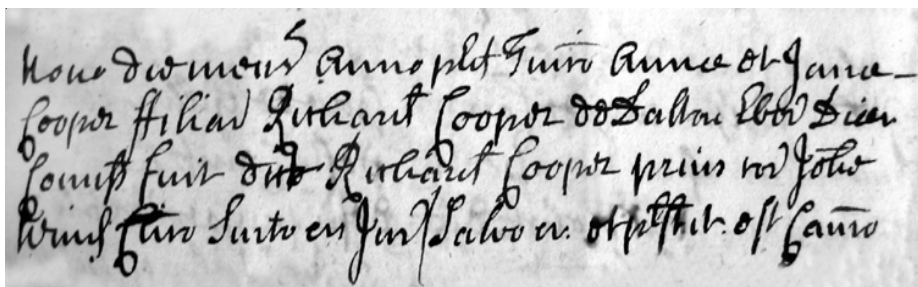 Nono die mens Anno pħt Tuićo Annæ et Janæ
Cooper ffiliar Richardi Cooper de Dalton Ebor Dioc
Comissᵃ fuit dicto Richardi Cooper prius cor Johe
Winch Clico Jurto en Jur Salvo en et pħstit est Cauco